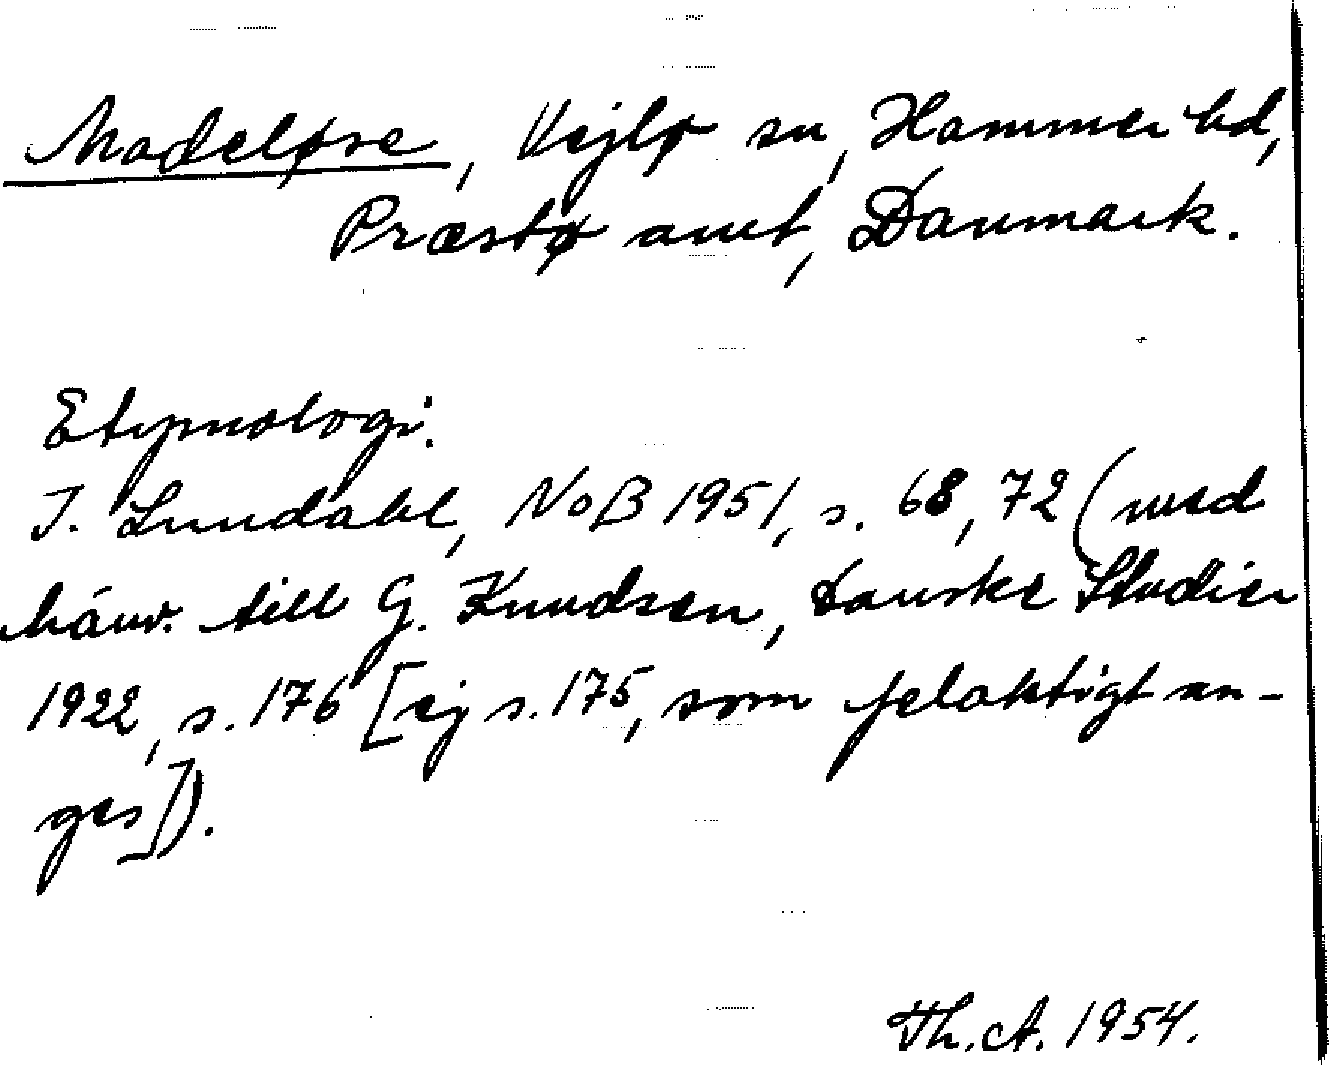 Madeløse, Vejlø sn, Hammer hd,
Præstø amt, Danmark.
Etymologi:
I. Lundahl, NoB 1951, s. 68, 72 (med
hänv. till G. Knudsen, Danske Studier
1922, s. 176 [ej s. 175, som felaktigt an-
ges]).
Th. A. 1954.